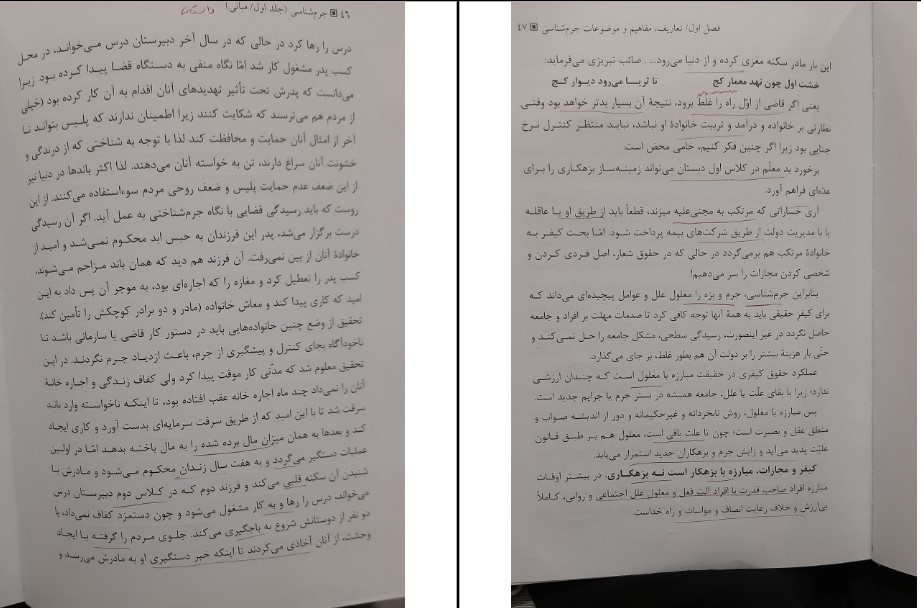 ۴۶ جرم‌شناسی (جلد اول/ مبانی) داستان
درس را رها کرد در حالی که در سال آخر دبیرستان درس می‌خوانـد، در محـل
کسب پدر مشغول کار شد امّا نگاه منفی به دستگاه قضـا پیـدا کـرده بـود. زیـرا
می‌دانست که پدرش تحت تأثیر تهدیدهای آنان اقدام به آن کار کرده بود (خیلی
از مردم هم می‌ترسند که شکایت کنند زیرا اطمینان ندارند که پلـیس بتوانـد تـا
آخر از امثال آنان حمایت و محافظت کند لذا با توجه به شناختی که از درندگی و
خشونت آنان سراغ دارند، تن به خواسته آنان می‌دهند. لذا اکثر باندها در دنیا نیز
از این ضعف عدم حمایت پلیس و ضعف روحی مردم سوءاستفاده می‌کنند. از این
روست که باید رسیدگی قضایی با نگاه جرم‌شناختی به عمل آید. اگر آن رسیدگی
درست برگزار می‌شد، پدر این فرزندان به حبس ابد محکـوم نمـی‌شـد و امیـد از
خانوادهٔ آنان از بین نمی‌رفت. آن فرزند هم دید که همان باند مـزاحم مـی‌شـوند،
کسب پدر را تعطیل کرد و مغازه را که اجاره‌ای بود، به موجر آن پس داد به ایـن
امید که کاری پیدا کند و معاش خانواده (مادر و دو برادر کوچکش را تأمین کند).
تحقیق از وضع چنین خانواده‌هایی باید در دستور کار قاضی یا سازمانی باشـد تـا
ناخودآگاه بجای کنترل و پیشگیری از جرم، باعـث ازدیـاد جـرم نگردنـد. در ایـن
تحقیق معلوم شد که مدّتی کار موقت پیدا کرد ولی کفاف زنـدگی و اجـاره خانـهٔ
آنان را نمی‌داد چند ماه اجاره خانه عقب افتاده بود، تا اینکـه ناخواسـته وارد بانـد
سرقت شد تا با این امید که از طریق سرقت سرمایه‌ای بدست آورد و کاری ایجـاد
کند و بعدها به همان میزان مال برده شده را به مال باختـه بدهـد امّـا در اولـین
عملیات دستگیر می‌گردد و به هفت سال زنـدان محکـوم مـی‌شـود و مـادرش بـا
شنیدن آن سکته قلبی می‌کند و فرزند دوم کـه در کـلاس دوم دبیرستان درس
می‌خواند، درس را رها و به کار مشغول می‌شود و چون دستمزد کفاف نمی‌داد، با
دو نفر از دوستانش شروع به باجگیری می‌کند. جلـوی مـردم را گرفتـه بـا ایجـاد
وحشت، از آنان اخاذی می‌کردند تا اینکه خبر دستگیری او به مادرش می‌رسـد و
فصل اول/ تعاریف، مفاهیم و موضوعات جرم‌شناسی ۴۷
این بار مادر سکته مغزی کرده و از دنیا می‌رود... . صائب تبریزی می‌فرماید:
خشت اول چون نهد معمار کج تا ثریـا می‌رود دیـوار کـج
یعنی اگر قاضی از اول راه را غلط برود، نتیجهٔ آن بسیار بدتر خواهد بود وقتـی
نظارتی بر خانواده و درآمد و تربیت خانوادهٔ او نباشد، نبایـد منتظـر کنتـرل نـرخ
جنایی بود زیرا اگر چنین فکر کنیم، خامی محض است.
برخورد بد معلّم در کلاس اول دبستان می‌تواند زمینه‌سـاز بزهکـاری را بـرای
عدّه‌ای فراهم آورد.
آری خساراتی که مرتکب به مجنی‌علیه میزند، قطعاً باید از طریق او یـا عاقلـه
یا با مدیریت دولت از طریق شرکت‌های بیمه پرداخت شود. امّا بحـث کیفـر بـه
خانوادهٔ مرتکب هم برمی‌گردد در حالی که در حقوق شعار، اصل فـردی کـردن و
شخصی کردن مجازات را سر می‌دهیم!
بنابراین جرم‌شناسی، جرم و بزه را معلول علل و عوامل پیچیده‌ای می‌داند کـه
برای کیفر حقیقی باید به همهٔ آنها توجه کافی کرد تا صدمات مهلت بر افراد و جامعه
حاصل نگردد در غیر اینصورت، رسیدگی سطحی، مشکل جامعه را حـل نمـی‌کنـد و
حتّی بار هزینهٔ بیشتر را بر دولت آن هم بطور غلط، بر جای می‌گذارد.
عملکرد حقوق کیفری در حقیقت مبارزه با معلول اسـت کـه چنـدان ارزشـی
ندارد؛ زیرا با بقای علّت یا علل، جامعه همیشه در بستر جرم یا جرایم جدید است.
پس مبارزه با معلول، روش نابخردانه و غیرحکیمانه و دور از اندیشـه صـواب و
منطق عقل و بصیرت است؛ چون تا علت باقی است، معلول هـم بـر طبـق قـانون
علیّت پدید می‌آید و زایش جرم و بزهکاران جدید استمرار می‌یابد.
کیفر و مجازات، مبارزه با بزهکار است نـه بزهکـاری. در بیشـتر اوقـات
مبارزه افراد صاحب قدرت با افراد آلت فعل و معلول علل اجتماعی و روانی، کـاملاً
بی‌ارزش و خلاف رعایت انصاف و مواسات و راه خداست.